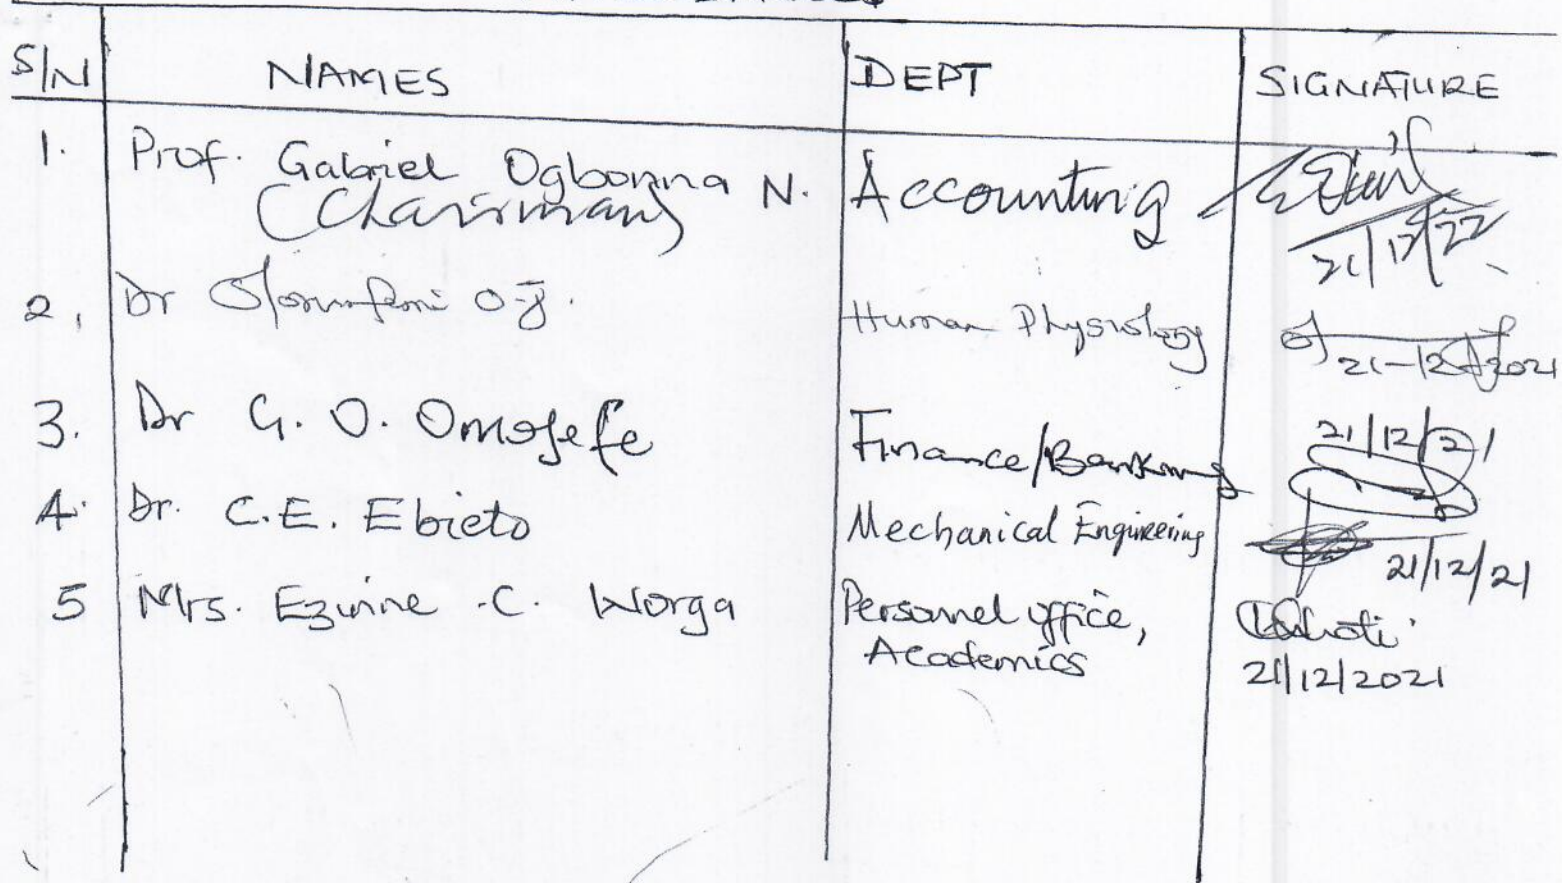 S/N NAMES DEPT SIGNATURE
1. Prof. Gabriel Ogbonna N. Accounting
(Chairman) 21/12/22
2. Dr O.J. Human Physiology
21-12-2021
3. Dr G. O. Omojefe Finance/Banking 21/12/21
4. Dr. C.E. Ebieto Mechanical Engineering
21/12/21
5 Mrs. Ezinne .C. Worga Personnel office,
Academics
21/12/2021